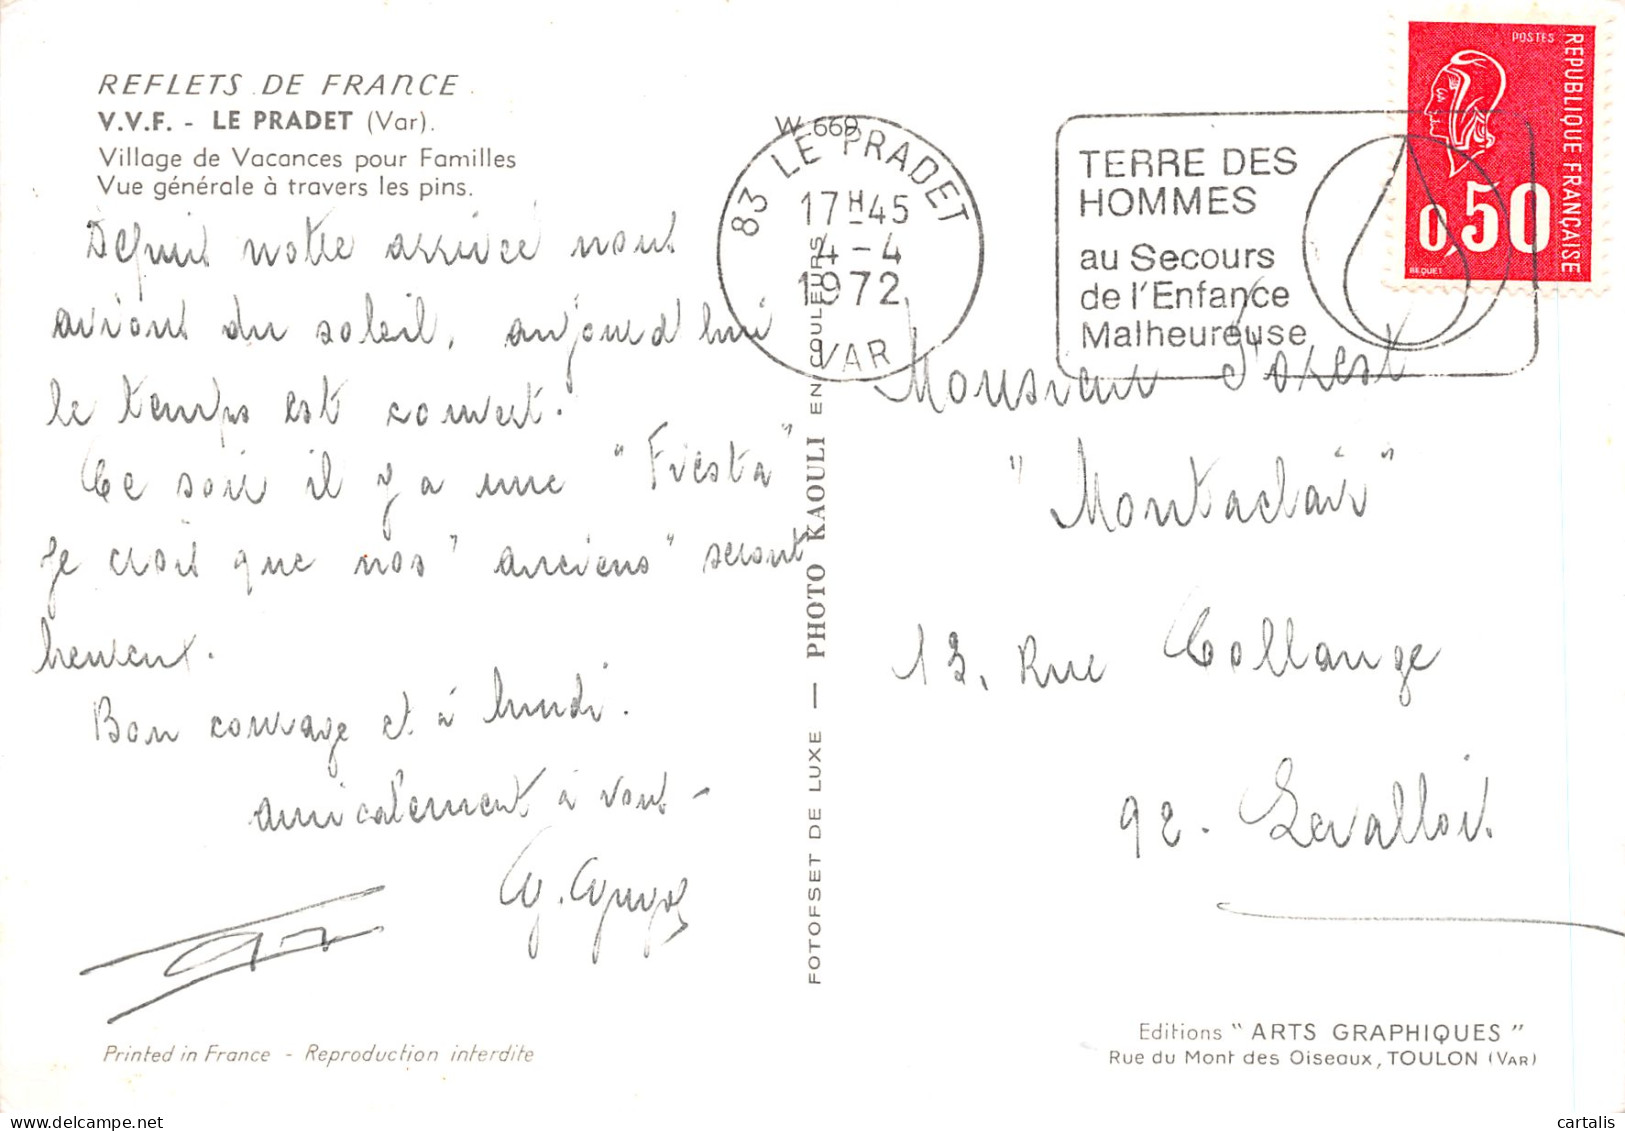 REFLETS DE FRANCE
V.V.F. - LE PRADET (Var).
Village de Vacances pour Familles
Vue générale à travers les pins.
Depuis notre arrivée nous
avions du soleil, aujourd'hui
le temps est couvert.
Ce soir il y a une "Fiesta"
Je crois que nos "anciens" seront
heureux.
Bon courage et à lundi.
amicalement à vous -
Printed in France - Reproduction interdite
FOTOFSET DE LUXE — PHOTO KAOULI EN COULEURS
W.669
83 LE PRADET
17H45
4-4
1972
VAR
TERRE DES
HOMMES
au Secours
de l'Enfance
Malheureuse
POSTES
REPUBLIQUE FRANÇAISE
0,50
BEQUET
Monsieur
"Montaclair"
13, Rue Collange
92 - Levallois.
Editions "ARTS GRAPHIQUES"
Rue du Mont des Oiseaux, TOULON (VAR)
cartalis